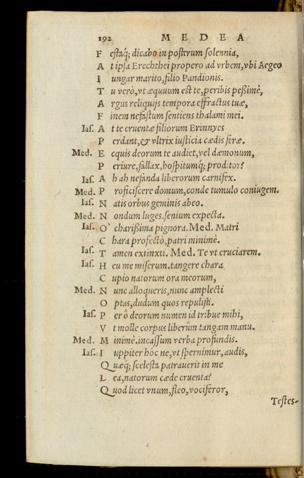 192 MEDEA
F estaq́; dicabo in postrum solennia,
A t ipsa Erechthei propero ad vrbem, vbi Aegeo
I ungar marito, filio Pandionis.
T u verò, vt æquum est te, peribis pessimè,
A rgus reliquijs tempora effractus tuæ,
F inem nefastum sentiens thalami mei.
Ias. A t te cruentæ filiorum Erinnyes
P erdant, & vltrix iusticia cædis feræ.
Med. E cquis deorum te audiet, vel dæmonum,
P eriure, fallax, hospitumq́; proditor?
Ias. A h ah nefanda liberorum carnifex.
Med. P roficiscere domum, conde tumulo coniugem.
Ias. N atis orbus geminis abeo.
Med. N ondum luges. senium expecta.
Ias. O' charißima pignora. Med. Matri
C hara profectò, patri minimè.
Ias. T amen extinxti. Med. Te vt cruciarem.
Ias. H eu me miserum. tangere chara
C upio natorum ora meorum,
Med. N unc alloqueris, nunc amplecti
O ptas, dudum quos repulisti.
Ias. P er ò deorum numen id tribue mihi,
V t molle corpus liberûm tangam manu.
Med. M inimè. incassum verba profundis.
Ias. I uppiter hoc ne, vt spernimur, audis,
Q uæq́; scelesta patrauerit in me
L ea, natorum cæde cruenta?
Q uod licet vnum, fleo, vociferor,
Testes-